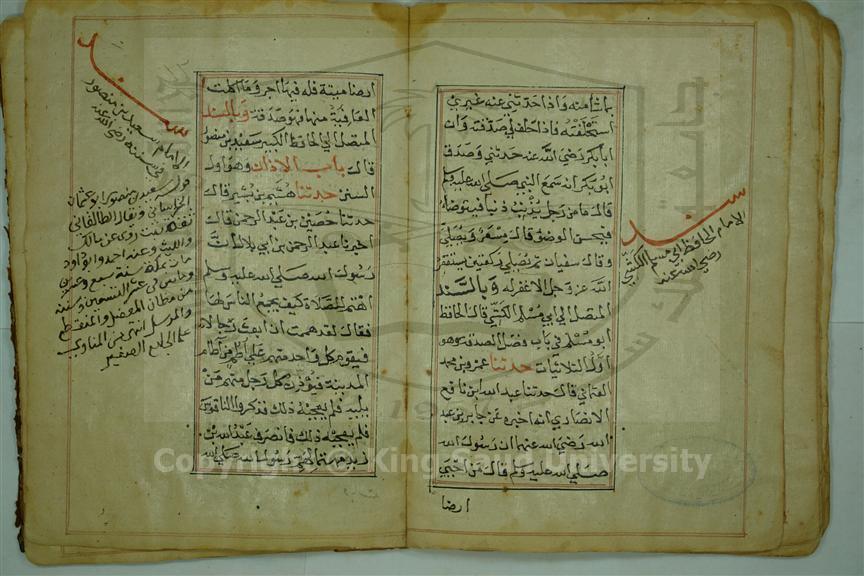 بما شاء منه واذا حدثني عنه غيري
استحلفته فاذا حلف لي صدقته وان
ابا بكر رضي الله عنه حدثني وصدق
ابو بكر انه سمع النبي صلى الله عليه وسلم
قال ما من رجل يذنب ذنبا فيتوضاء
فيحسن الوضوء قال مسعر ويصلي
وقال سفيان ثم يصلي ركعتين يستغفر
الله عز وجل الا غفر له وبالسند
المتصل الي ابي مسلم الكشي قال الحافظ
ابو مسلم في باب فضل الصدقة وهو
اول الثلاثيات حدثنا عمرو بن محمد
العثماني قال حدثنا عبد الله ابن نافع
الانصاري انه اخبره عن جابر بن عبد
الله رضي الله عنهما ان رسول الله
صلي الله عليه وسلم قال من احيي
ارضا
سند
الامام الحافظ ابي مسلم الكشي
رضي الله عنه
ارضا ميتة فله فيها اجر وما اكلت
العافية منها فهو صدقة وبالسند
المتصل الي الحافظ الكبير سعيد بن منصور
قال باب الاذان وهو اول
السنن حدثنا هشيم بن بشير قال
حدثنا حصين بن عبد الرحمن قال
اخبرنا عبد الرحمن بن ابي ليلا ان
رسول الله صلي الله عليه وسلم
اهتم للصلاة كيف يجمع الناس لها
فقال لقد هممت ان ابعث رجالا
فيقوم كل واحد منهم علي اطم من آطام
المدينة فيؤذن كل رجل منهم من
يليه فلم يعجبه ذلك فذكروا الناقوس
فلم يعجبه ذلك فانصرف عبد الله بن
زيد مهتما لهم رسول الله صلي الله
سند
الامام سعيد بن منصور
في سننه رضي الله عنه
قوله سعيد بن منصور ابو عثمان
الخراساني ويقال الطالقاني
ثقة ثبت روى عن مالك
والليث وعنه احمد وابو داود
مات بمكة سنة سبع وعشرين
ومائتين في عشر التسعين وسننه
من مظان المعضل والمنقطع
والمرسل انتهى من المناوي
على الجامع الصغير
Copyright © King Saud University